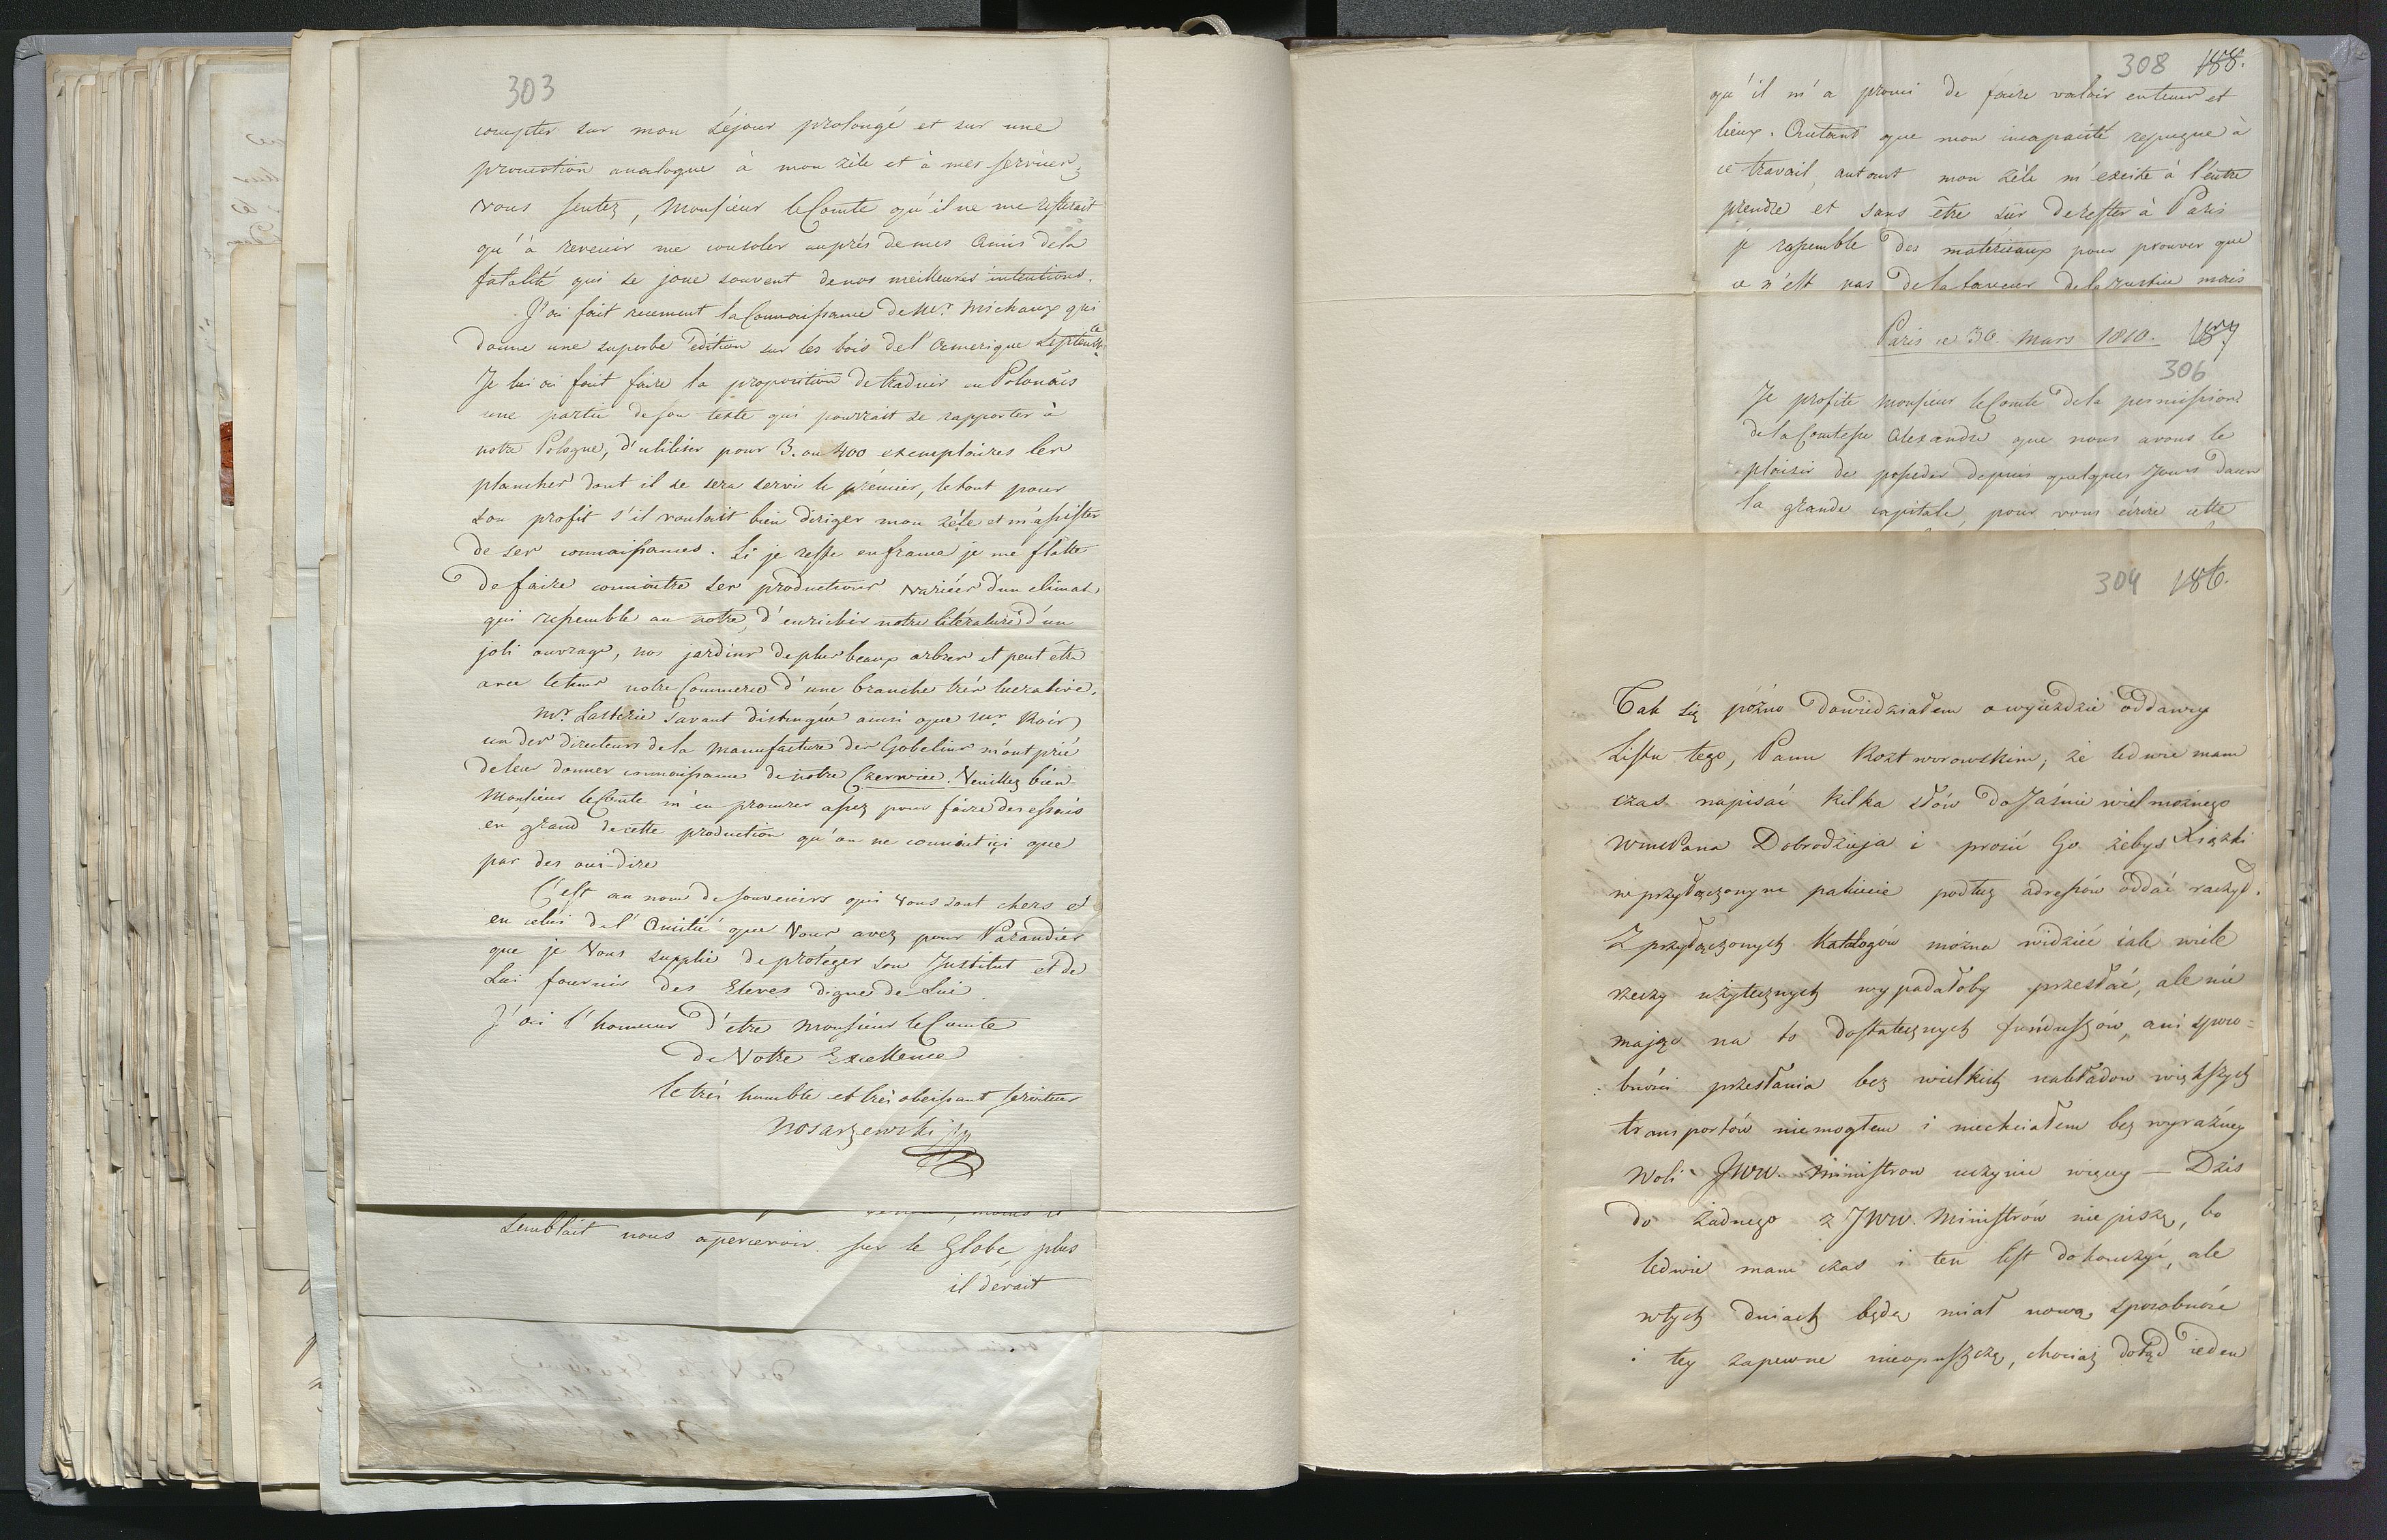 303
compter sur mon séjour prolongé et sur une
promotion analogue à mon zèle et à mes services
vous sentez, Monsieur le Comte qu'il ne me resterait
qu'à revenir me consoler auprès de mes Amis de la
fatalité qui se joue souvent de nos meilleures intentions.
J'ai fait recement la Connoissance de Mr. Michaux qui
donne une superbe édition sur les bois de l'Amerique
Je lui ai fait faire la proposition de traduir en Polonais
une partie de son texte qui pourrait se rapporter à
notre Pologne, d'utiliser pour 3. ou 400 exemplaires les
planches dont il se sera servi le prémier, le tout pour
son profit s'il voulait bien diriger mon zéle et m'assister
de ses connaissances. Si je reste en france je me flâtte
de faire connoitre les productions variées d'un climat
qui ressemble au notre, d'enrichir notre litérature d'un
joli ouvrage, nos jardins de plus beaux arbres et peut être
avec le tems notre Commerce d'une branche très lucrative.
Mr. Lasterie Savant distingué ainsi que Mr. Roàr
un des directeurs de la Manufacture des Gobelins m'ont prié
de leur donner connaissance de notre Czerwiec. Veuillez bien
Monsieur le Comte m'en procurer assez pour faire des essais
en grand de cette production qu'on ne connoit ici que
par des oui-dire
C'est au nom de souvenirs qui vous sont chers et
en celui de l'Amitié que Vous avez pour Parandier
que je Vous supplie de protéger son Institut et de
Lui fournir des Eleves dignes de Lui
J'ai l'honneur d'etre Monsieur le Comte
de Votre Excellence
le très humble et très obeissant serviteur
Nosarzewski
semblait nous apercevoir sur le Globe plus
il dévait
308 188.
qu'il m'a promi de faire valoir en tems et
lieux. Autant que mon incapacité repugne à
ce travail, autant mon zèle m'excite à l'entre
prendre et sans être sûr de rester à Paris
je rassemble des matériaux pour prouver que
ce n'est pas de la faveur de la justice mais
Paris ce 30. Mars 1810. 187
306
Je profite Monsieur le Comte de la permission
de la Comtesse Alexandre que nous avons le
plaisir de posseder depuis quelques Jours dans
la grande capitale, pour vous écrire cette
304 186.
Tak się póżno dowiedziałem o wyieździe oddawcy
Listu tego, Pana Roztworowskim, że ledwie mam
czas napisać kilka słów do Jaśnie wielmożnego
WmcPana Dobrodzieja i prosić Go żebyś Xiązki
w przyłączonym pakiecie podług adressów oddać raczył.
Z przyłączonych Katalogów można widzieć iak wiele
rzeczy użytecznych wypadałoby przesłać, ale nie
mając na to dostatecznych funduszów, ani sposo=
bności przesłania bez wielkich nakładow większych
transportów niemogłem i niechciałem bez wyraźney
woli JWW. Ministrow uczynić więcey — Dziś
do żadnego z JWW. Ministrów nie piszę, bo
ledwie mam czas i ten list dokończyć, ale
w tych dniach będę miał nową sposobność
i tey zapewne nieopuszczę, chociaż dotąd ieden